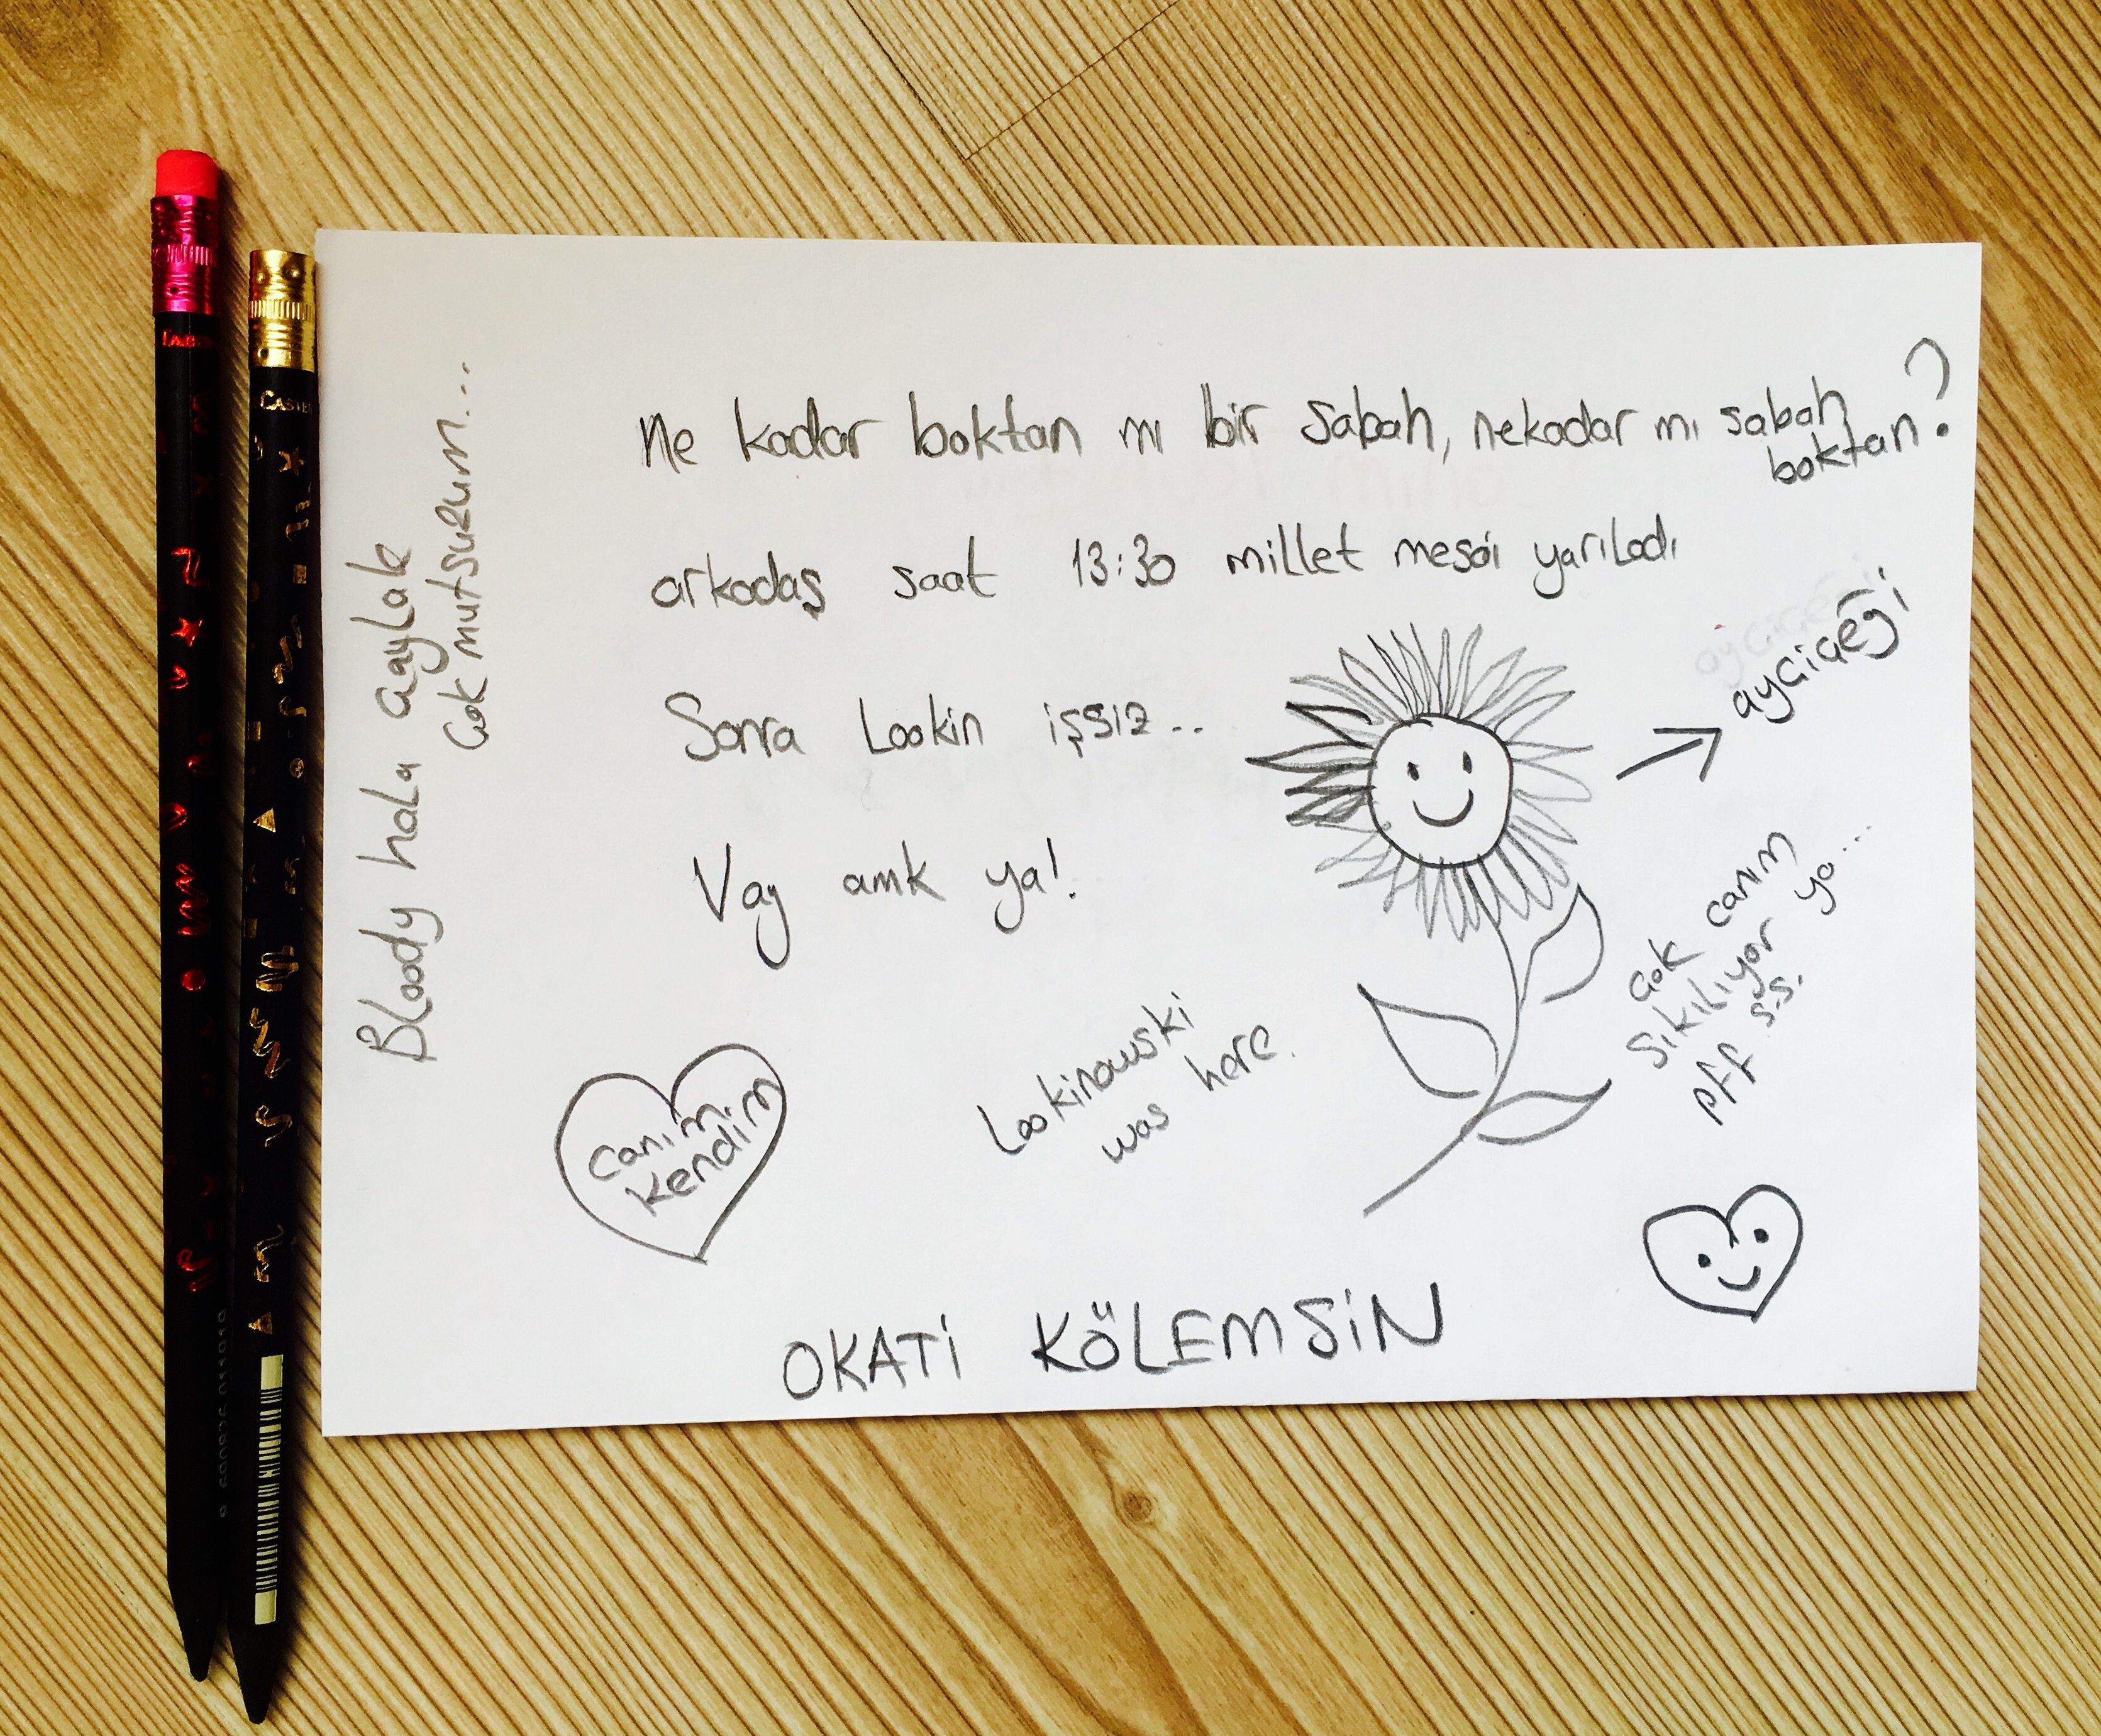 Ne kadar boktan mı bir sabah, nekadar mı sabah
boktan?
arkadaş saat 13:30 millet mesai yarıladı
Sonra Lookin işsiz..
Vay amk ya!
Bloody hala çaylak
Çok mutsuzum...
ayçiçeği
ayçiçeği
Çok canım
sıkılıyor ya...
pff s.s.
Lookinowski
was here.
Canım
kendim
OKATİ KÖLEMSİN
CASTE